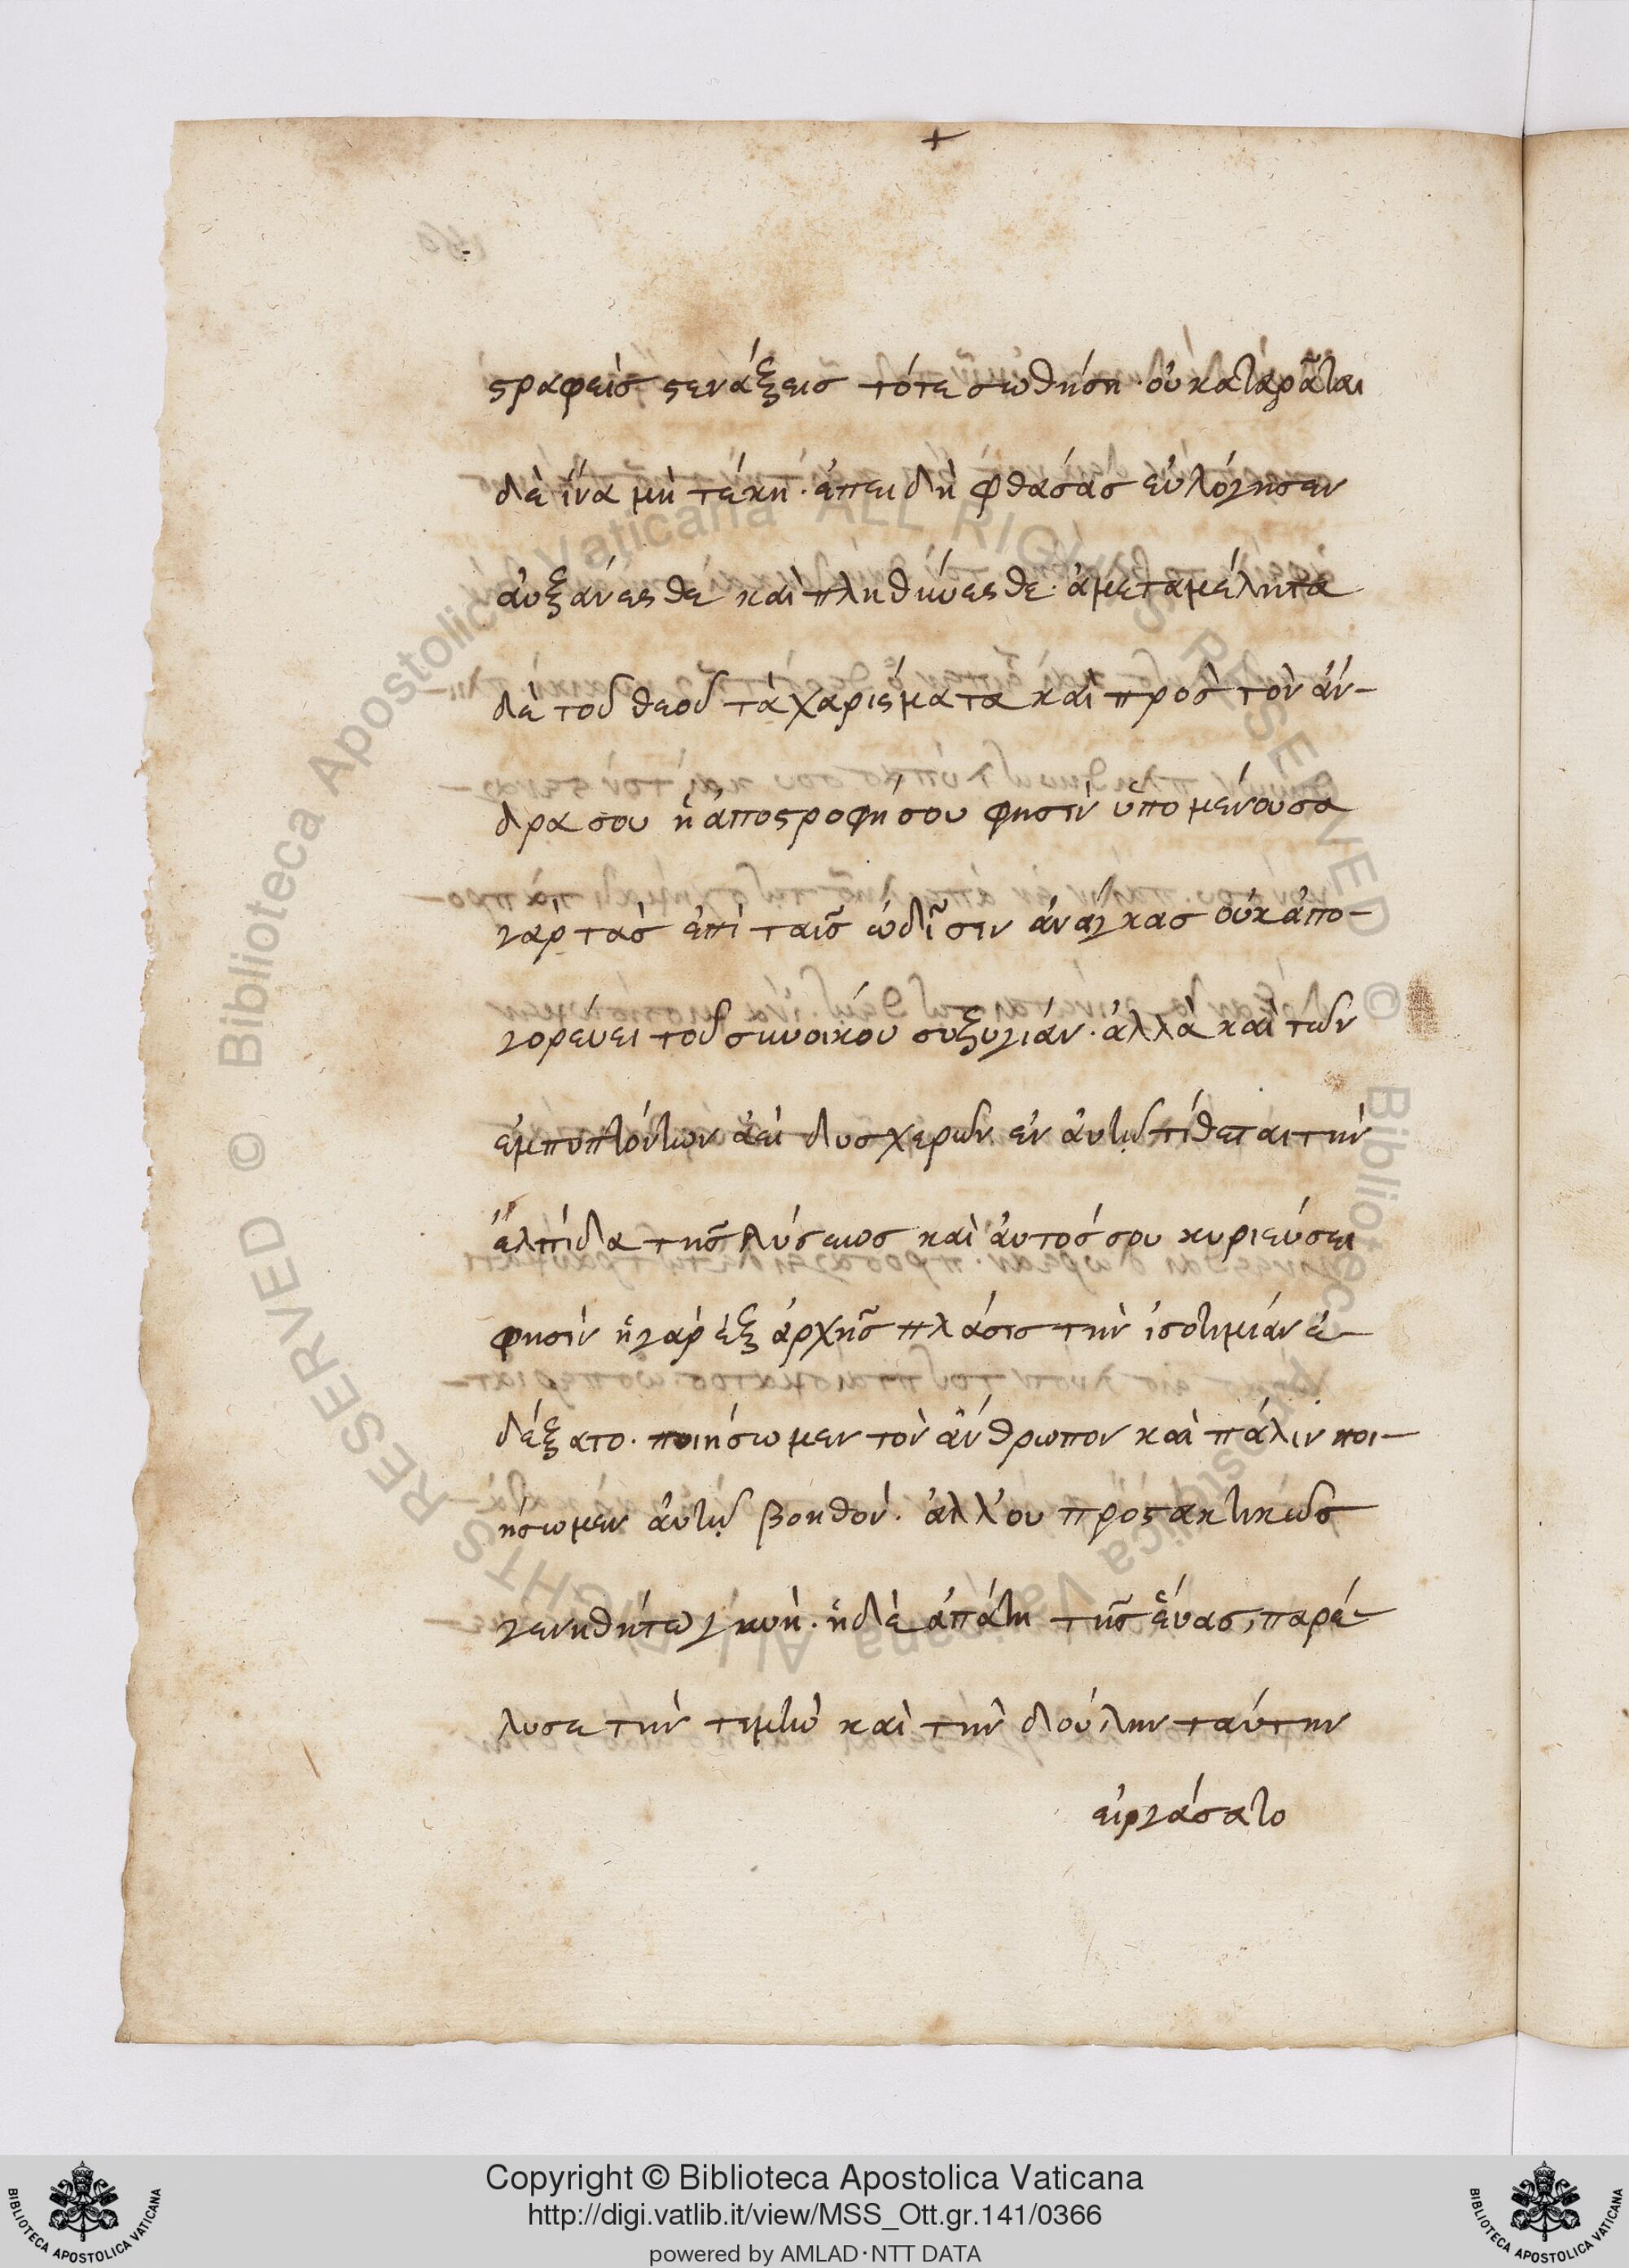 +
στραφεὶς στενάξεις τότε σωθήση· οὐ καταρᾶται
δὲ ἵνα μὴ τέκη· ἐπειδὴ φθάσας εὐλόγησεν
αὐξάνεσθε καὶ πληθύνεσθε· ἀμεταμέλητα
δὲ τοῦ θεοῦ τὰ χαρίσματα καὶ πρὸς τὸν ἄν-
δρα σου ἡ ἀποστροφή σου φησὶν ὑπομένουσα
γὰρ τὰς ἐπὶ ταῖς ὠδῖσιν ἀνάγκας οὐκ ἀπο-
γορέυει τοῦ συνοικου συζυγιάν· ἀλλὰ καὶ τῶν
ἐμπυπτόντων ἀεὶ δυσχερῶν ἐν ἀυτῷ τίθεται τὴν
ἐλπίδα τῆς λύσεως καὶ ἀυτός σου κυριεύσει
φησὶν ἡ γὰρ ἐξ ἀρχῆς πλάσις τὴν ἰσοτιμιάν ἐ-
δέξατο· ποιήσωμεν τὸν ἄνθρωπον καὶ πάλιν ποι-
ήσωμεν ἀυτῷ βοηθόν· ἀλλ' ου προστακτικῶς
γενηθήτω γυνὴ· ἡ δὲ ἀπάτη τῆς ἔυας, παρέ-
λυσε τὴν τιμὴν καὶ τὴν δούλην ταύτην
εἰργάσατο
Copyright © Biblioteca Apostolica Vaticana
http://digi.vatlib.it/view/MSS_Ott.gr.141/0366
powered by AMLAD·NTT DATA